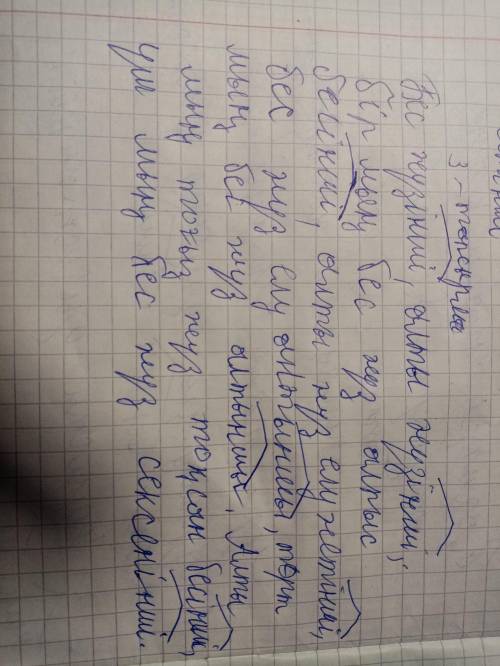 3-тапсырма
Бес жүзінші, алты жүзінші,
бір мың бес жүз алтыс
бесінші, алты жүз елу жетінші,
бес жүз елу алтыншы, төрт
мың бес жүз алтыншы, Алты
мың тоғыз жүз тоқсан бесінші,
үш мың бес жүз сексенінші.